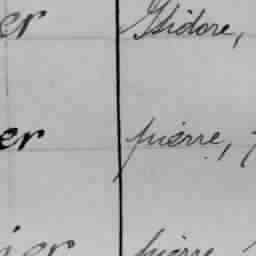 er Isidore,
er pierre,
ier pierre